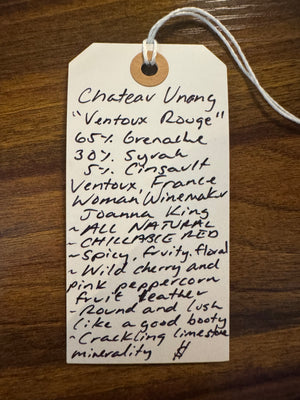 Chateau Unang
"Ventoux Rouge"
65% Grenache
30% Syrah
5% Cinsault
Ventoux, France
Woman Winemaker
Joanna King
~ALL NATURAL
~CHILLABLE RED
~Spicy, fruity, floral
~Wild cherry and
pink peppercorn
fruit leather
~Round and lush
like a good booty
~Crackling limestone
minerality $